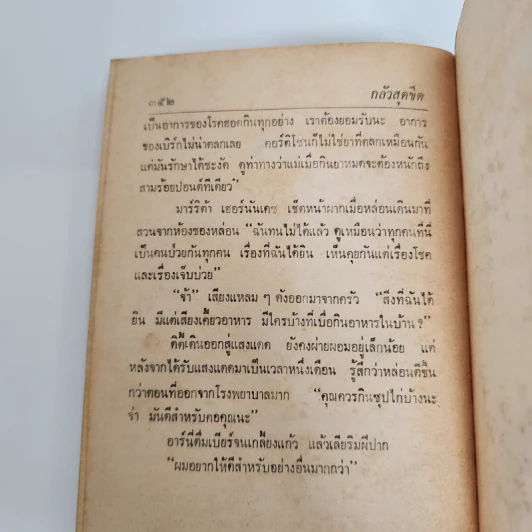 ๓๕๒ กลัวสุดขีด
เป็นอาการของโรคฮอดกินทุกอย่าง เราต้องยอมรับนะ อาการ
ของเบิร์กไม่น่าตลกเลย คอร์ติโซนก็ไม่ใช่ยาที่ตลกเหมือนกัน
แต่มันรักษาได้ชะงัด ดูท่าทางว่าแม่เมื่อกินยาหมดจะต้องหนักถึง
สามร้อยปอนด์ทีเดียว"
มาร์ริต้า เฮอร์นันเดซ เช็ดหน้าผากเมื่อหล่อนเดินมาที่
สวนจากห้องของหล่อน "ฉันทนไม่ได้แล้ว ดูเหมือนว่าทุกคนที่นี่
เป็นคนป่วยกันทุกคน เรื่องที่ฉันได้ยิน เห็นคุยกันแต่เรื่องโรค
และเรื่องเจ็บป่วย"
"จ้า" เสียงแหลม ๆ ดังออกมาจากครัว "สิ่งที่ฉันได้
ยิน มีแต่เสียงเคี้ยวอาหาร มีใครบ้างที่เบื่อกินอาหารในบ้าน ?"
ดิดี้เดินออกสู่แสงแดด ยังคงผ่ายผอมอยู่เล็กน้อย แต่
หลังจากได้รับแสงแดดมาเป็นเวลาหนึ่งเดือน รู้สึกว่าหล่อนดีขึ้น
กว่าตอนที่ออกจากโรงพยาบาลมาก "คุณควรกินซุปไก่บ้างนะ
จ๋า มันดีสำหรับคอคุณนะ"
อาร์นี่ดื่มเบียร์จนเกลี้ยงแก้ว แล้วเลียริมฝีปาก
"ผมอยากให้ดีสำหรับอย่างอื่นมากกว่า"